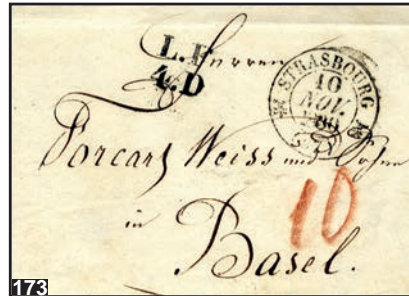 L.F
4.D
Herren
STRASBOURG
10
NOV.
Forcart Weiss und Söhne
10
in
Basel.
173